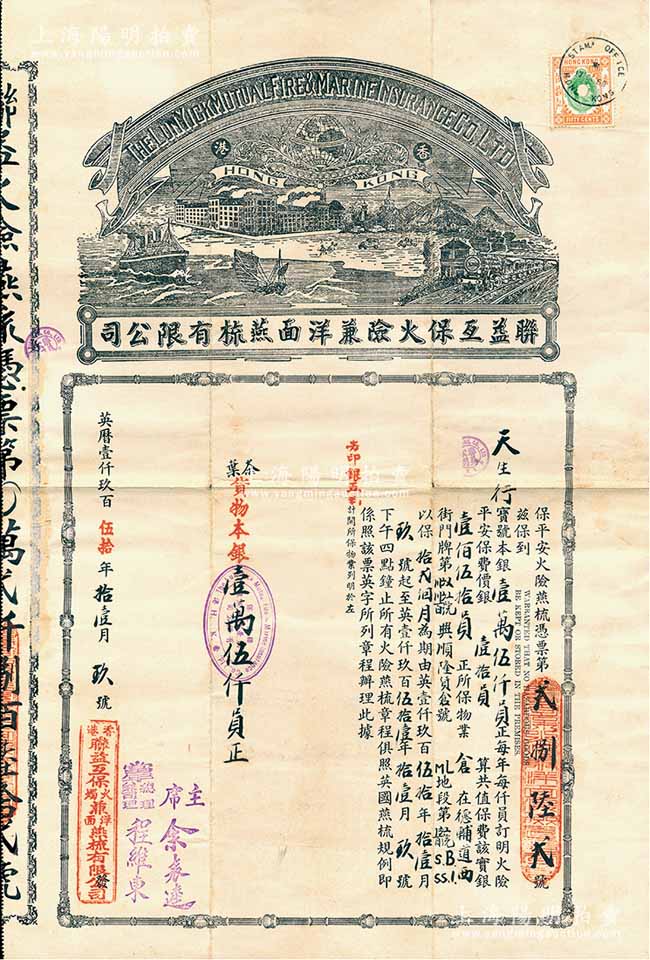 上海陽明拍賣
www.yangmingauction.com
STAMP OFFICE
HONG KONG
FIFTY CENTS
THE LUN YICK MUTUAL FIRE & MARINE INSURANCE CO. LTD
香港
HONG KONG
聯益互保火險兼洋面燕梳有限公司
保平安火險燕梳憑票第 弍捌陸弍 號
茲保到
WARRANTED THAT NO
BE KEPT OR STORED IN THE PREMISES.
天生行寶號本銀壹萬伍仟員正每年每仟員訂明火險
平安保費價銀 壹拾員 算共值保費該實銀
壹佰伍拾員 正所保物業 倉 在德輔道西
街門牌第 號興順隆貨倉 ML地段第 B.1. S.S.1
以保拾弍個月為期由英壹仟玖百伍拾年拾壹月
玖號起至英壹仟玖百伍拾壹年拾壹月玖號
下午四點鐘止所有火險燕梳章程俱照英國燕梳規例即
係照該票英字所列章程辦理此據
計開所保物業列明於左
茶葉貨物本銀壹萬伍仟員正
主席余表達
總理程維東
英曆壹仟玖百伍拾年拾壹月玖號
香港聯益互保火燭兼洋面燕梳有限公司發
聯益火險燕梳憑票第〇萬弍仟捌百陸拾弍號